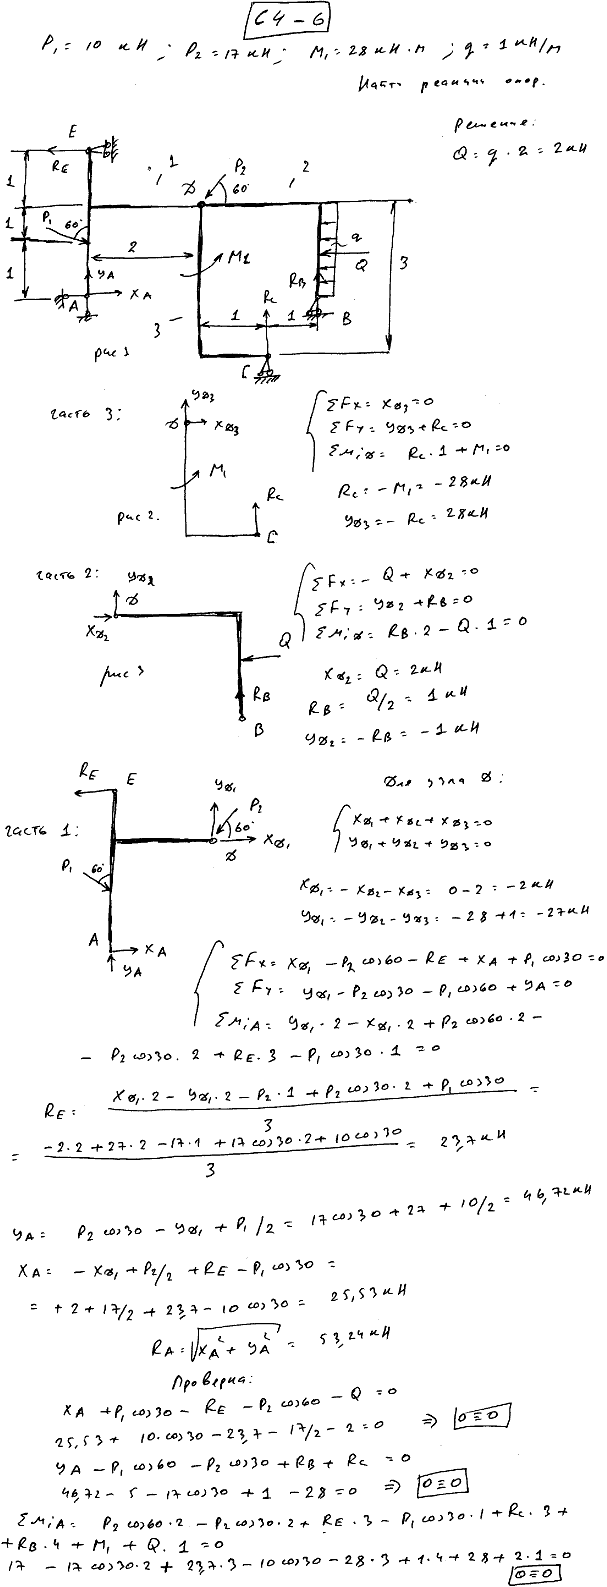 С4-6
P₁ = 10 кН ; P₂ = 17 кН ; M₁ = 28 кН·м ; q = 1 кН/м
Найти реакции опор.
Решение:
Q = q · 2 = 2 кН
E
R_E
1
1
1
P₁
60°
2
Y_A
X_A
A
1
D
P₂
60°
2
M₁
3
1
1
R_C
R_B
q
Q
3
B
C
рис 1
часть 3:
Y_D3
D
X_D3
M₁
R_C
C
рис 2.
ΣF_X = X_D3 = 0
ΣF_Y = Y_D3 + R_C = 0
ΣM_iD = R_C · 1 + M₁ = 0
R_C = - M₁ = - 28 кН
Y_D3 = - R_C = 28 кН
часть 2:
Y_D2
D
X_D2
Q
R_B
B
рис 3
ΣF_X = - Q + X_D2 = 0
ΣF_Y = Y_D2 + R_B = 0
ΣM_iD = R_B · 2 - Q · 1 = 0
X_D2 = Q = 2 кН
R_B = Q/2 = 1 кН
Y_D2 = - R_B = - 1 кН
часть 1:
R_E
E
Y_D1
P₂
60°
X_D1
D
P₁
60°
A
X_A
Y_A
Для узла D:
X_D1 + X_D2 + X_D3 = 0
Y_D1 + Y_D2 + Y_D3 = 0
X_D1 = - X_D2 - X_D3 = 0 - 2 = - 2 кН
Y_D1 = - Y_D2 - Y_D3 = - 28 + 1 = - 27 кН
ΣF_X = X_D1 - P₂ cos60 - R_E + X_A + P₁ cos30 = 0
ΣF_Y = Y_D1 - P₂ cos30 - P₁ cos60 + Y_A = 0
ΣM_iA = Y_D1 · 2 - X_D1 · 2 + P₂ cos60 · 2 -
- P₂ cos30 · 2 + R_E · 3 - P₁ cos30 · 1 = 0
R_E = (X_D1 · 2 - Y_D1 · 2 - P₂ · 1 + P₂ cos30 · 2 + P₁ cos30) / 3 =
= (-2·2 + 27·2 - 17·1 + 17 cos30·2 + 10 cos30) / 3 = 23,7 кН
Y_A = P₂ cos30 - Y_D1 + P₁/2 = 17 cos30 + 27 + 10/2 = 46,72 кН
X_A = - X_D1 + P₂/2 + R_E - P₁ cos30 =
= + 2 + 17/2 + 23,7 - 10 cos30 = 25,53 кН
R_A = √(X_A² + Y_A²) = 53,24 кН
Проверка:
X_A + P₁ cos30 - R_E - P₂ cos60 - Q = 0
25,53 + 10·cos30 - 23,7 - 17/2 - 2 = 0 ⇒ 0≡0
Y_A - P₁ cos60 - P₂ cos30 + R_B + R_C = 0
46,72 - 5 - 17 cos30 + 1 - 28 = 0 ⇒ 0≡0
ΣM_iA = P₂ cos60 · 2 - P₂ cos30 · 2 + R_E · 3 - P₁ cos30 · 1 + R_C · 3 +
+ R_B · 4 + M₁ + Q · 1 = 0
17 - 17 cos30·2 + 23,7·3 - 10 cos30 - 28·3 + 1·4 + 28 + 2·1 = 0
0≡0